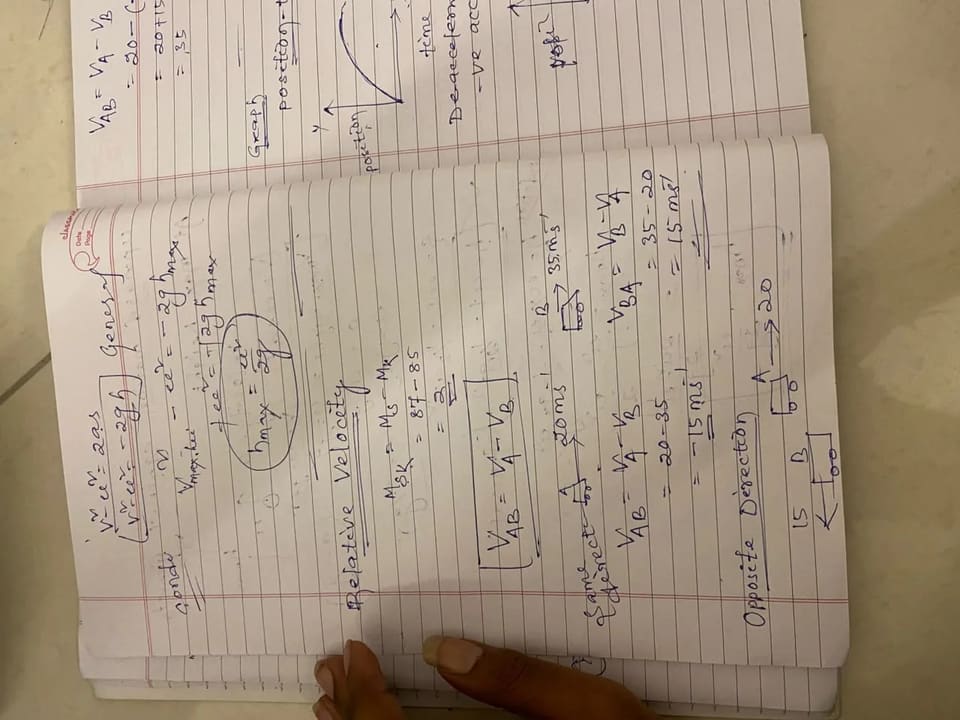 classmate
Date
Page
v² - u² = 2as
(v² - u² = -2gh) General
condi
v
v max. hei - u² = -2g h max
+ u² = + 2g h max
h max = u² / 2g
Relative Velocity
M SK = M S - M K
= 87 - 85
= 2
V AB = V A - V B
Same direct
A 20 ms⁻¹ B 35 ms⁻¹
V AB = V A - V B V BA = V B - V A
= 20 - 35 = 35 - 20
= -15 ms⁻¹ = 15 ms⁻¹
Opposite Direction
A → 20
15 B
V AB = V A - V B
= 20 - (-
= 20 + 15
= 35
Graph
position - t
Y
position
time
Deacceleration
-ve acc